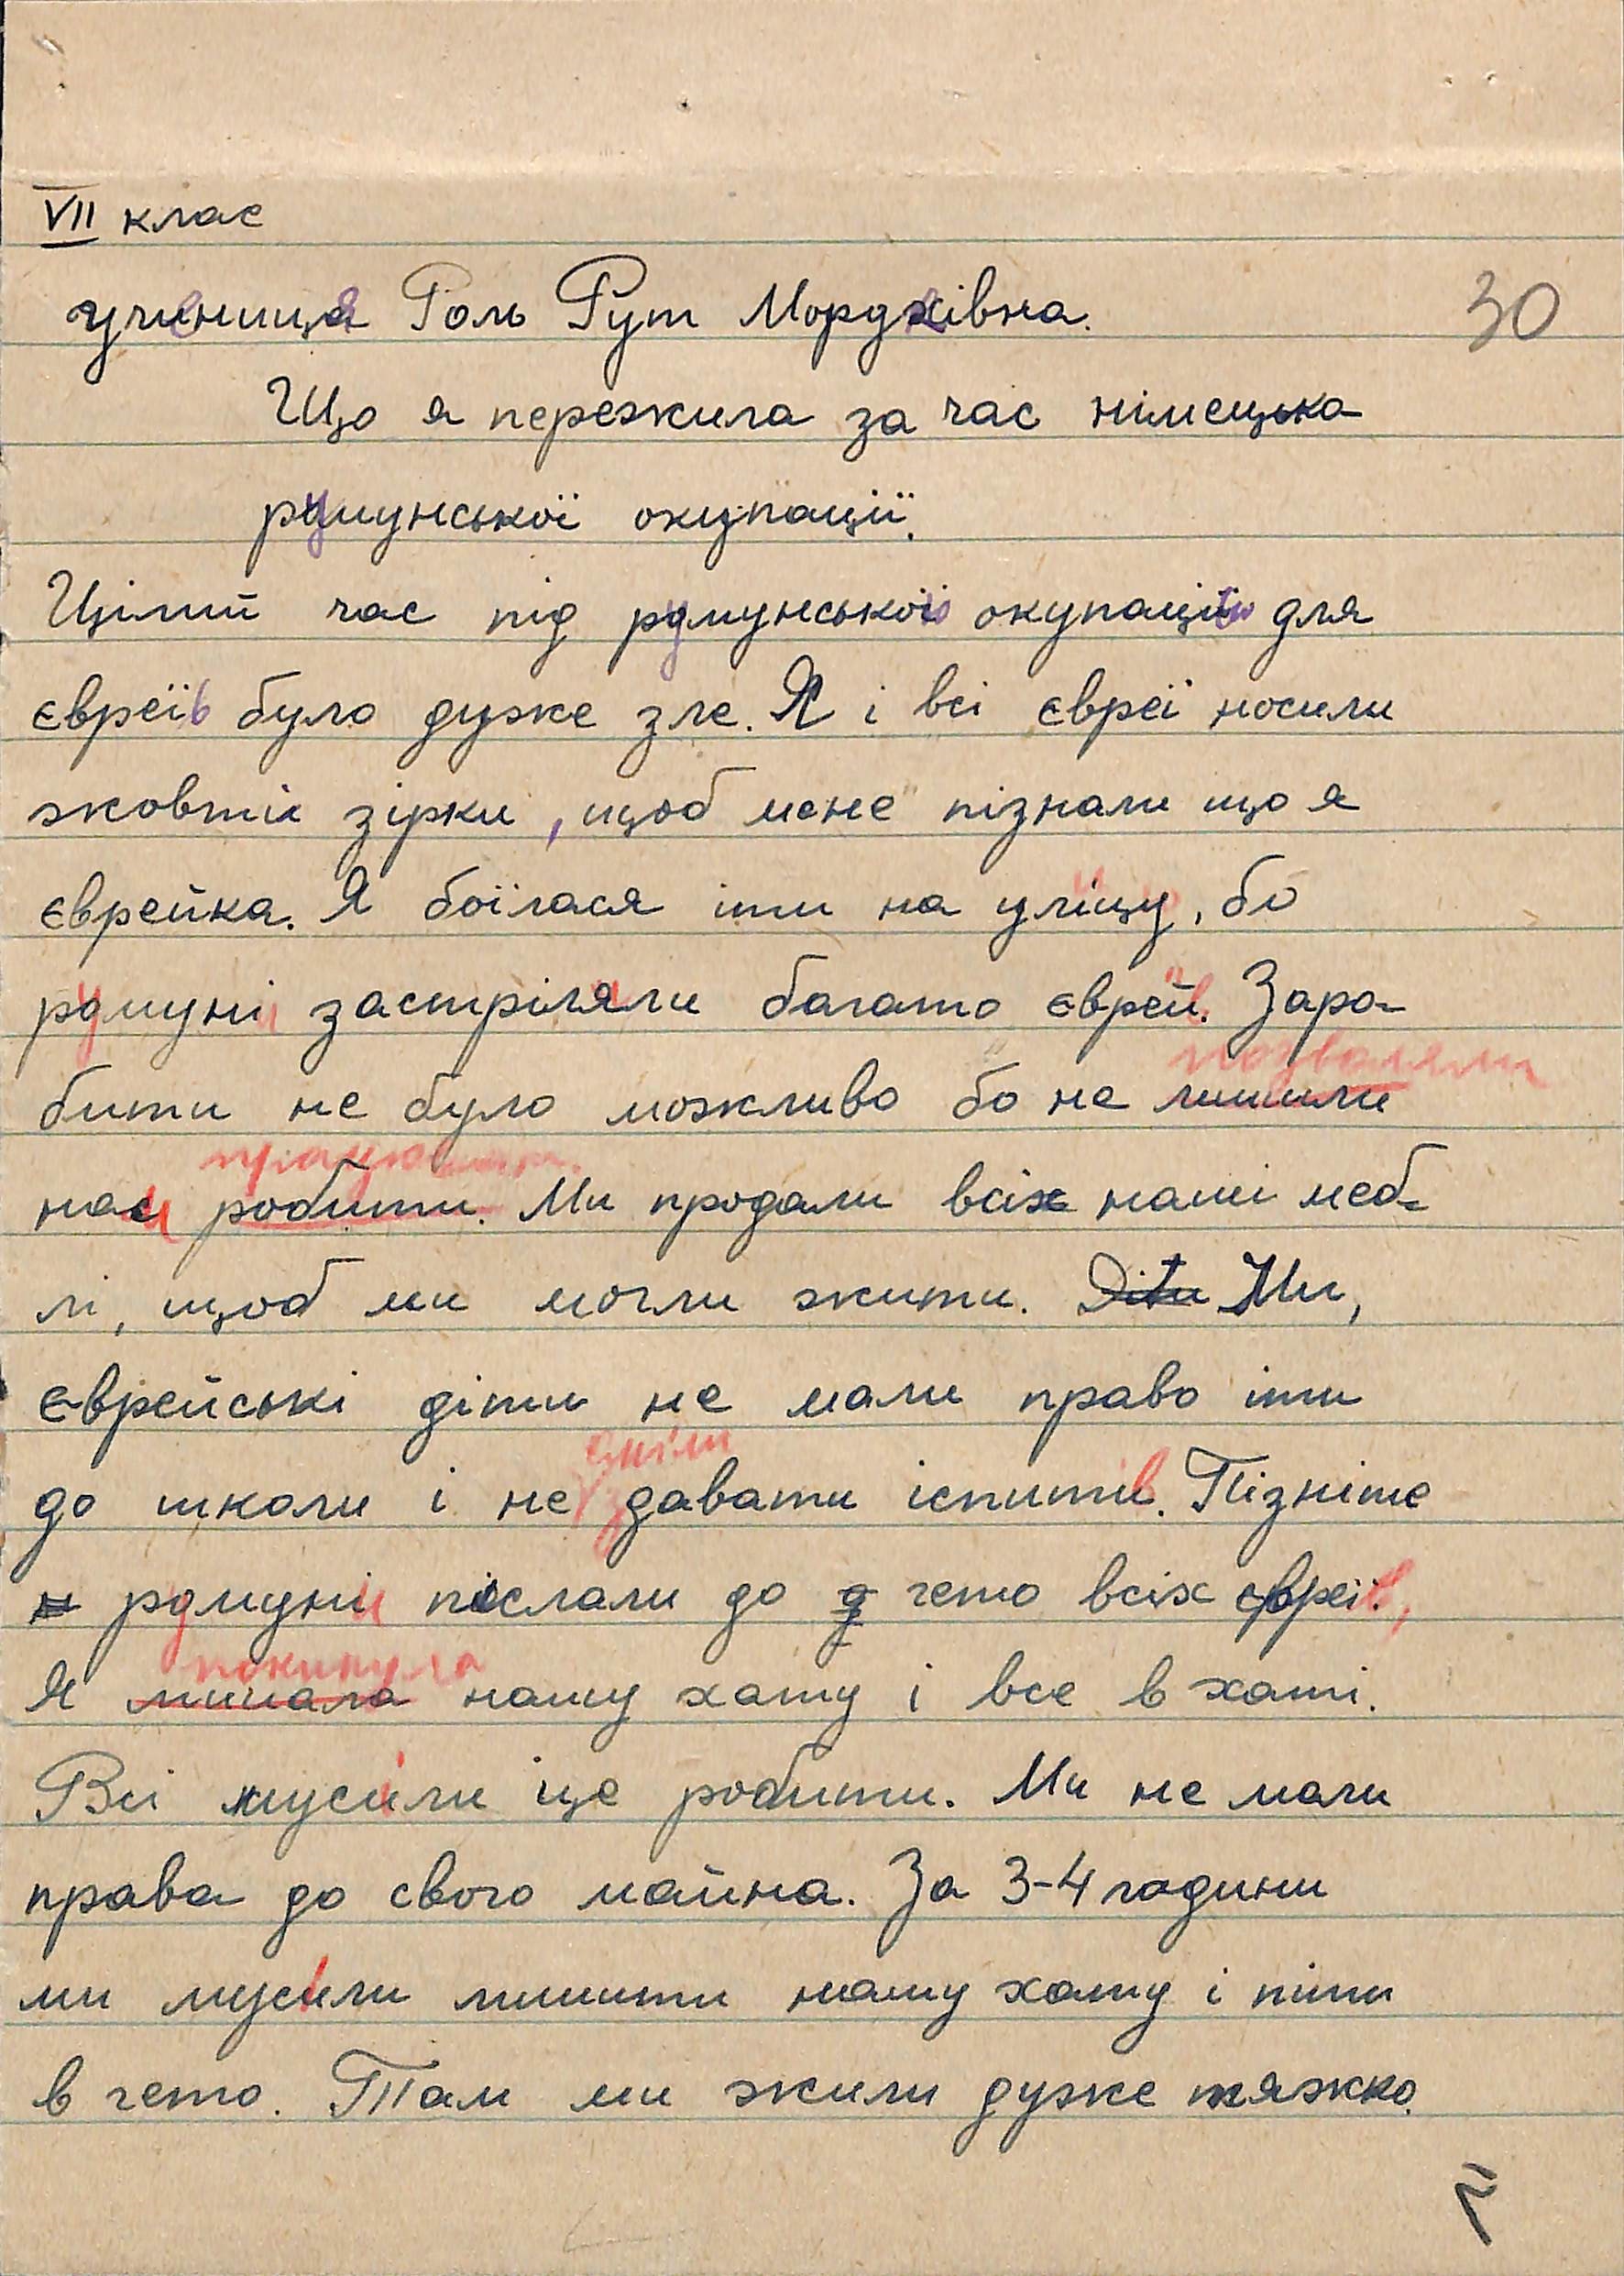 VII клас
учениця Голь Рут Мордківна.
30
Що я пережила за час німецька
румунської окупації.
Цілий час під румунською окупацію для
євреїв було дуже зле. Я і всі євреї носили
жовтіи зірки, щоб мене пізнали що я
єврейка. Я боїлася іти на уліцу, бо
румуни застріляли багато євреїв. Заро-
позволяли
бити не було можливо бо не лишили
працювати.
нам робити. Ми продали всіх наші меб-
лі, щоб ми могли жити. Діти Ми,
єврейські діти не мали право іти
сміли
до школи і не здавати іспитів. Пізніше
н румуни післали до д гето всіх євреїв,
покинула
Я лишала нашу хату і все в хаті.
Всі мусіли це робити. Ми не мали
права до свого майна. За 3-4 години
ми мусіли лишити нашу хату і піти
в гето. Там ми жили дуже тяжко.